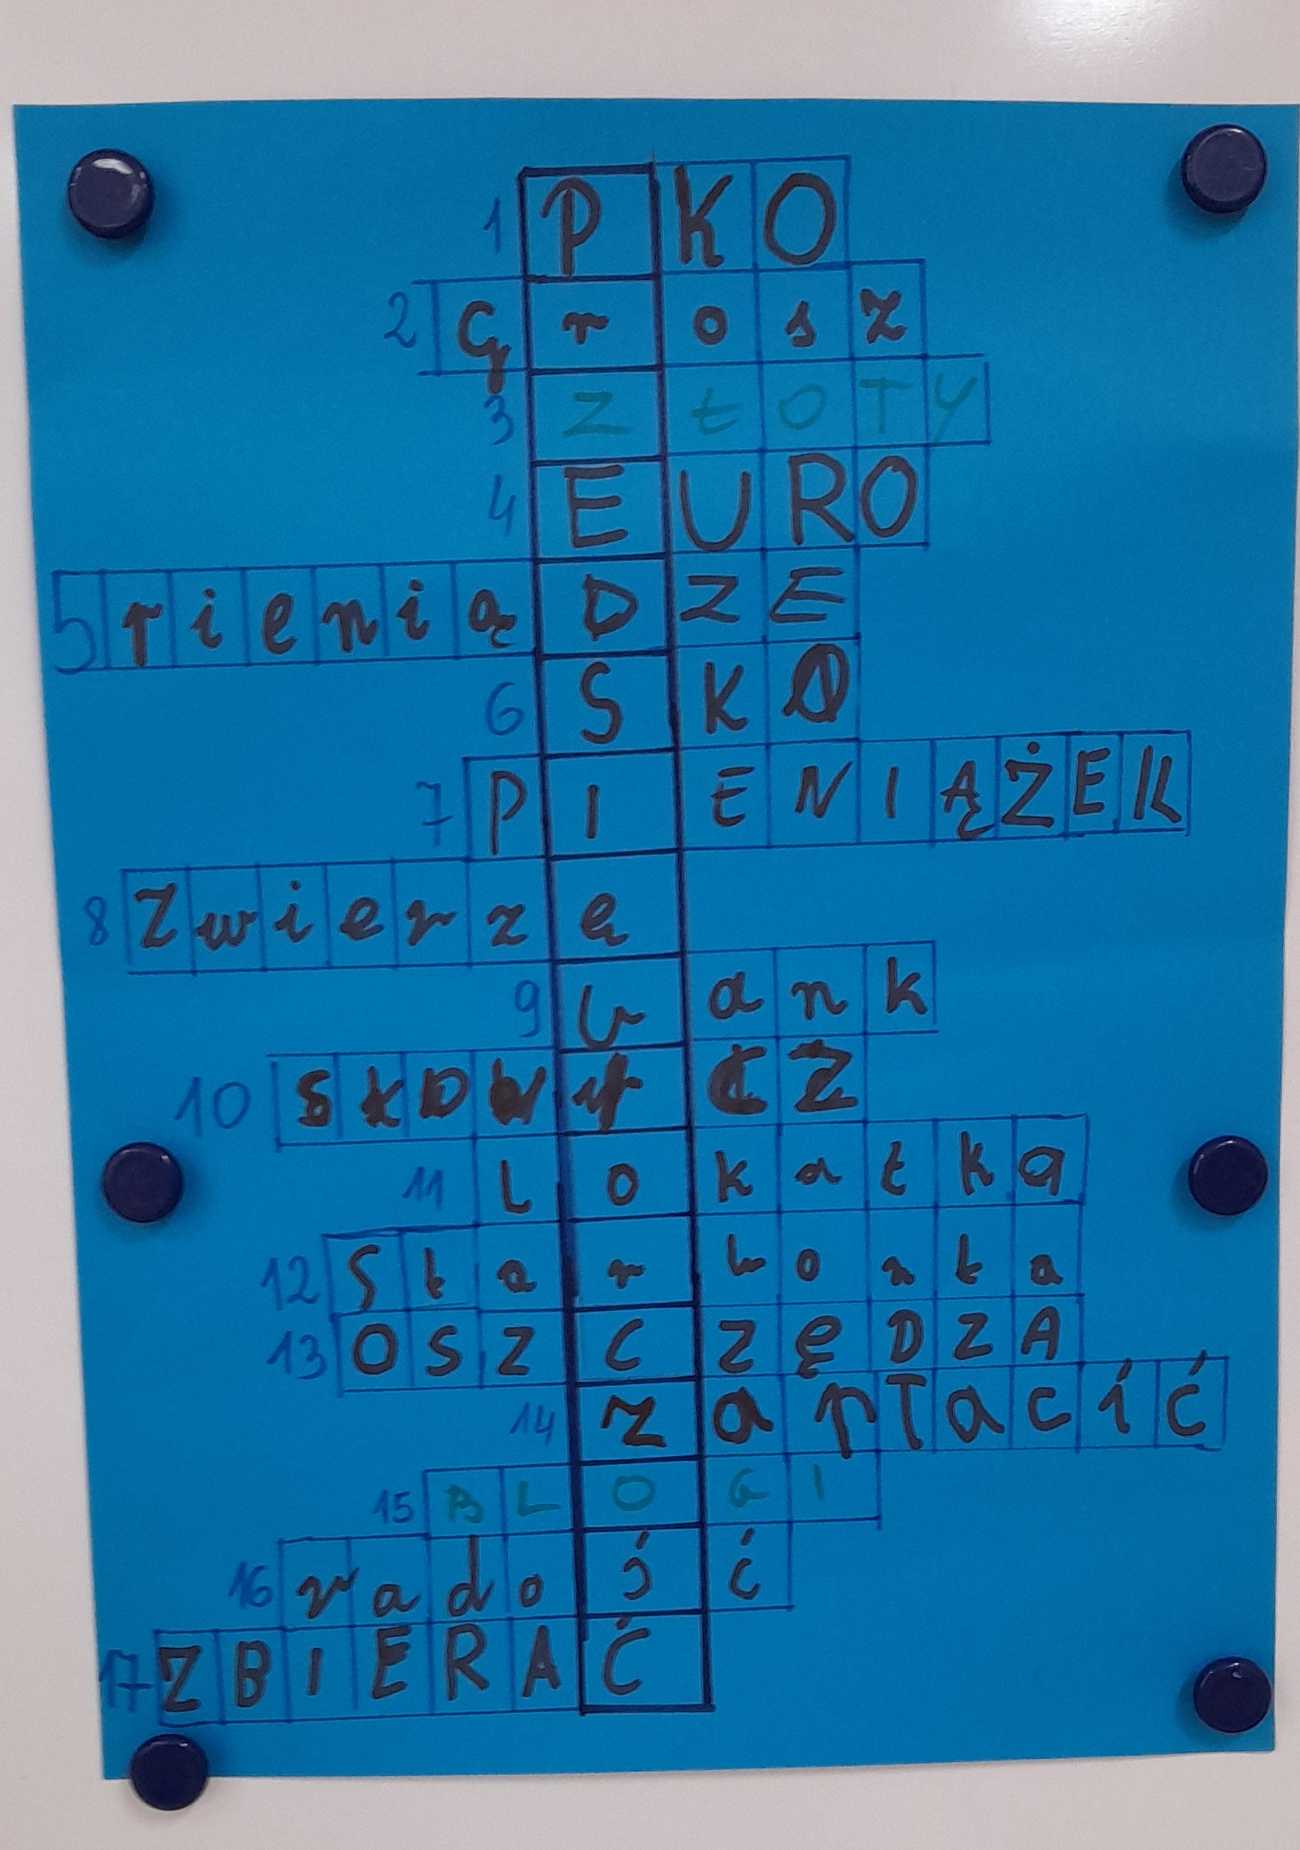 1 PKO
2 Grosz
3 ZŁOTY
4 EURO
5 pieniąDZE
6 SKO
7 PIENIĄŻEK
8 Zwierzę
9 bank
10
11 Lokatka
12 Star konta
13 OSZCZĘDZA
14 zapłacić
15 BLOGI
16 radość
17 ZBIERAĆ